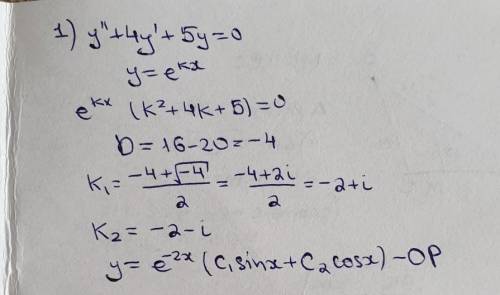 1) y''+4y'+5y=0
y=e^{kx}
e^{kx} (k²+4k+5)=0
D=16-20=-4
K₁=\frac{-4+\sqrt{-4}}{2}=\frac{-4+2i}{2}=-2+i
K₂=-2-i
y=e^{-2x}(C₁sinx+C₂cosx)-OP